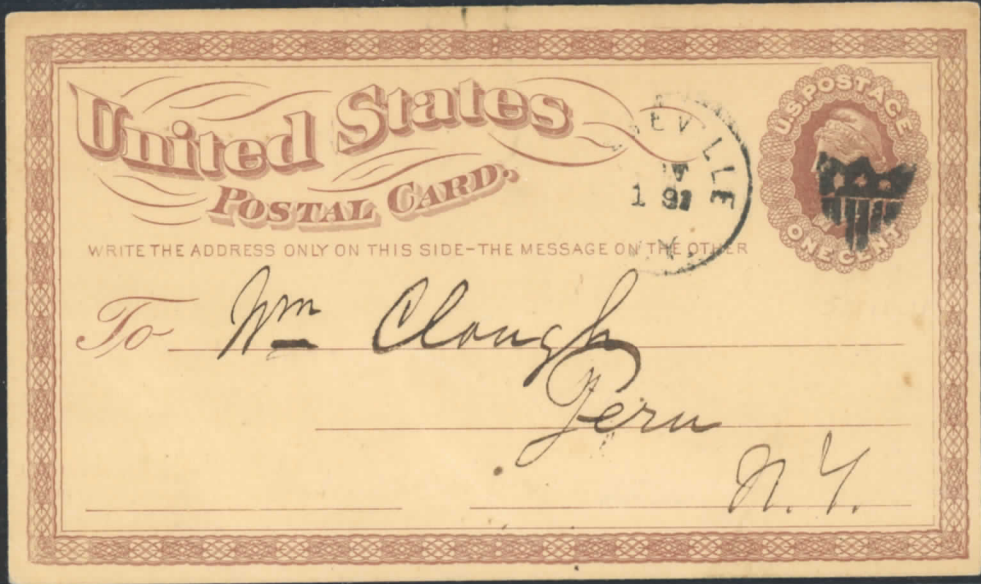 United States
POSTAL CARD.
WRITE THE ADDRESS ONLY ON THIS SIDE-THE MESSAGE ON THE OTHER
U.S. POSTAGE
ONE CENT
To Wm Clough
Peru
N. Y.